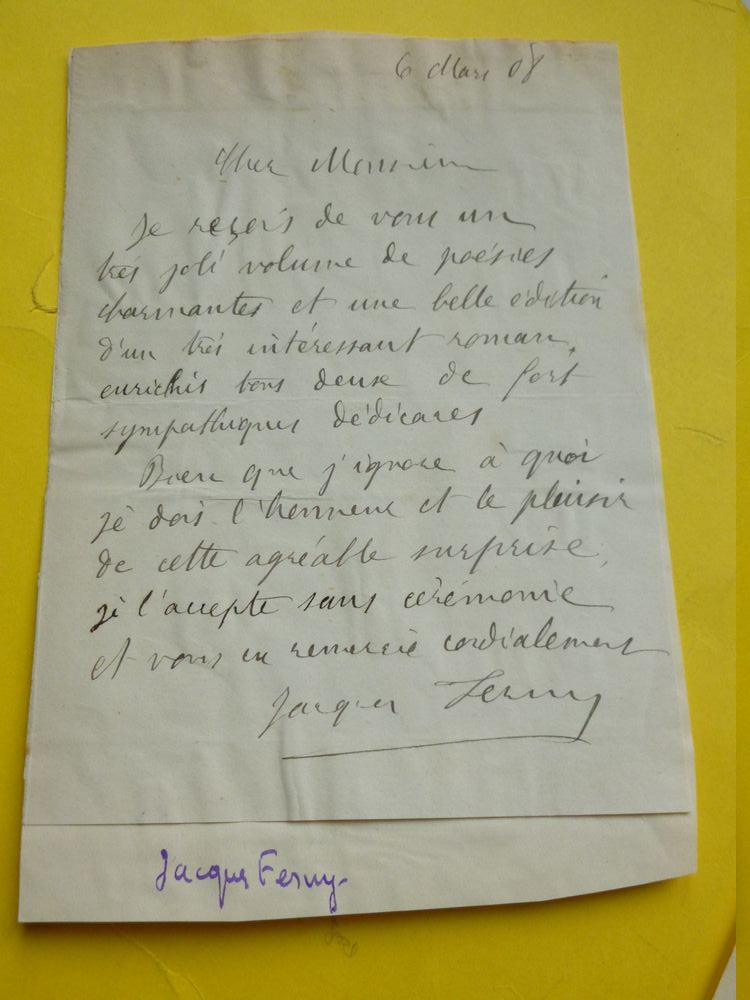 6 Mars 08
Cher Monsieur
Je reçois de vous un
très joli volume de poésies
charmantes et une belle édition
d'un très intéressant roman,
enrichis tous deux de fort
sympathiques dédicaces
Bien que j'ignore à quoi
je dois l'honneur et le plaisir
de cette agréable surprise,
je l'accepte sans cérémonie
et vous en remercie cordialement
Jacques Ferny
Jacques Ferny-